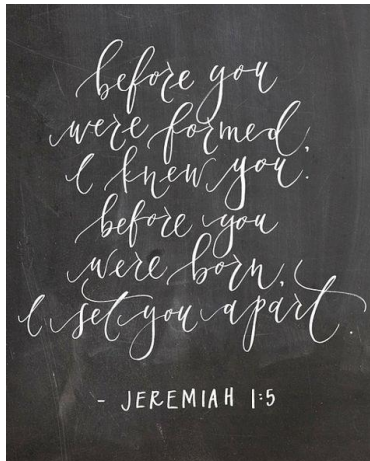 before you
were formed,
I knew you.
before you
were born,
I set you apart.
- JEREMIAH 1:5